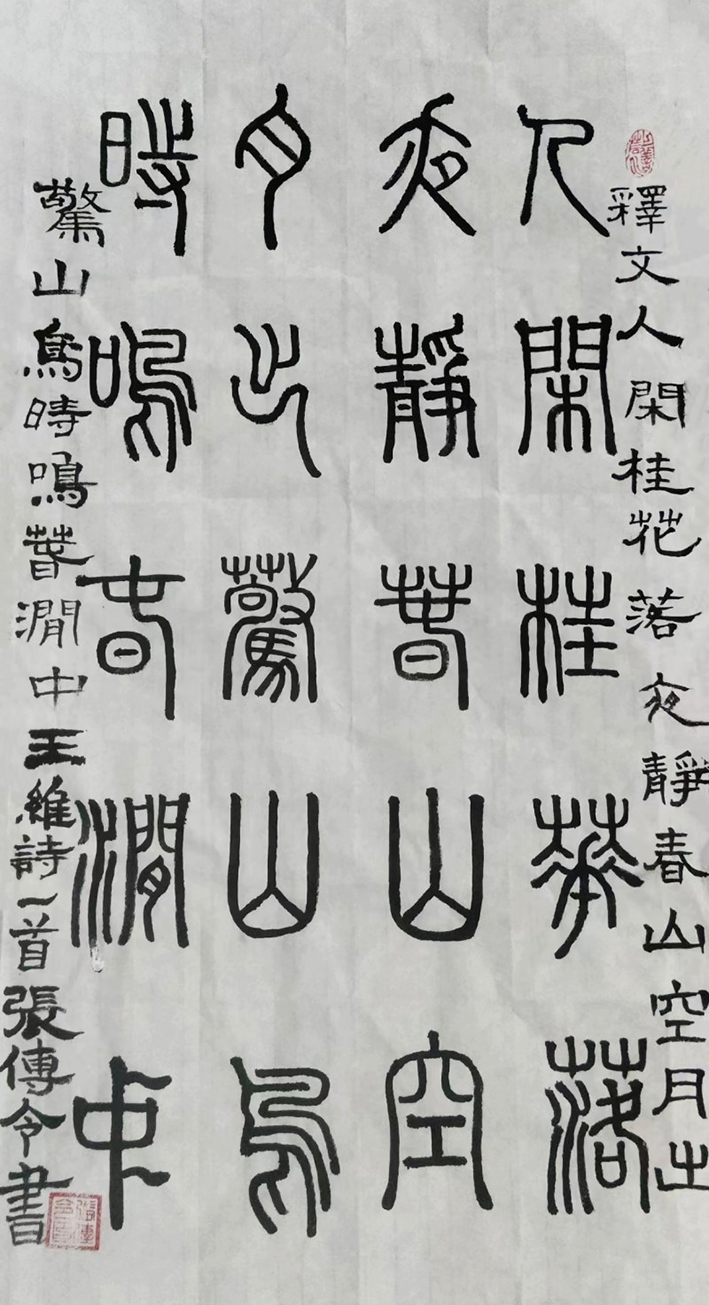 釋文人閑桂花落夜靜春山空月出
人閑桂華落
夜靜春山空
月出驚山鳥
時鳴春澗中
驚山鳥時鳴春澗中王維詩一首張傳令書